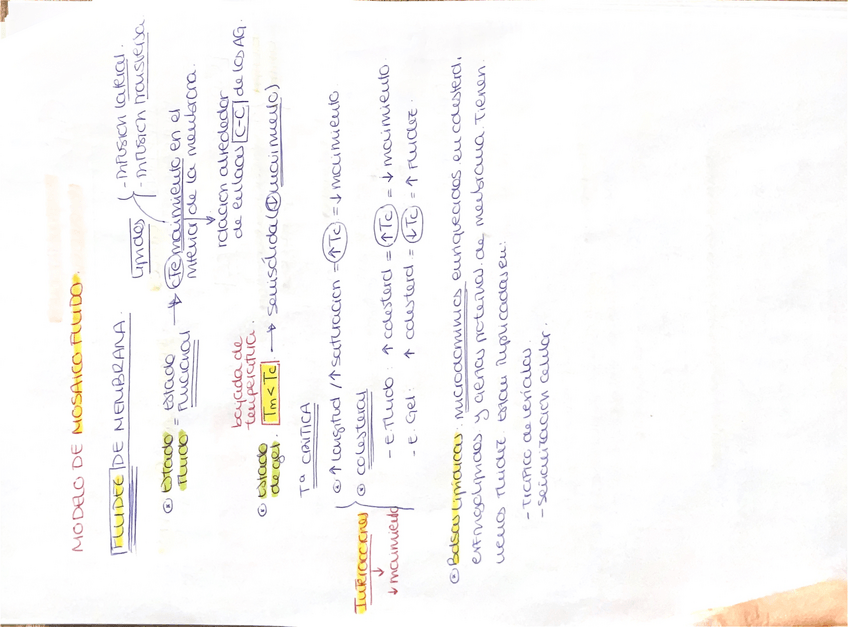 MODELO DE MOSAICO FLUIDO.
FLUIDEZ DE MEMBRANA.
Lípidos - Difusión lateral.
- Difusión transversa.
⊙ Estado fluido = Estado funcional → (Tc) movimiento en el interior de la membrana.
↓
rotación alrededor de enlaces C-C de los AG.
bajada de temperatura.
⊙ Estado de gel. Tm < Tc → semisólida (↓ movimiento)
Tª CRÍTICA
⊙ ↑ longitud / ↑ saturación = ↑Tc = ↓ movimiento.
⊙ colesterol
- E. Fluido: ↑ colesterol = ↑Tc = ↓ movimiento.
- E. Gel: ↑ colesterol = ↓Tc = ↑ Fluidez.
Interacciones
↓
↓ movimiento
⊙ Balsas lipídicas: microdominios enriquecidos en colesterol,
esfingolípidos y ciertas proteínas de membrana. Tienen
menos fluidez. Están implicadas en:
- Tráfico de señales.
- Señalización celular.